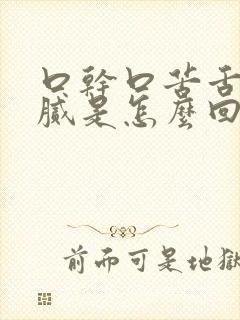 口幹口苦舌
膩是怎麼回
前而可是地獄